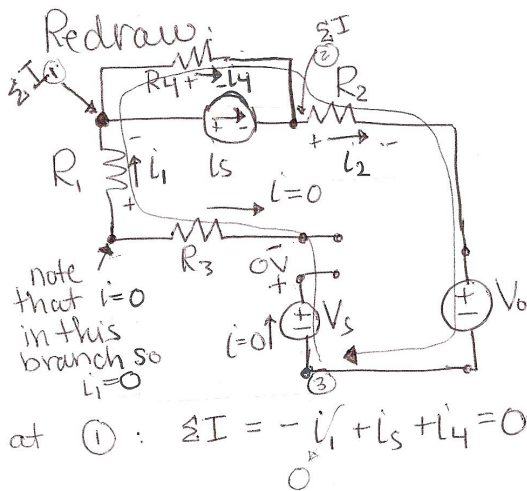 Redraw:
ΣI
②
ΣI ①
R4 + → - i4
R2
+ → -
i2
+ -
is
R1
-
i1
+
i=0
R3
0V
-
+
note
that i=0
in this
branch so
i1=0
i=0
+
-
Vs
+
-
Vo
③
at ① : ΣI = - i1 + is + i4 = 0
0